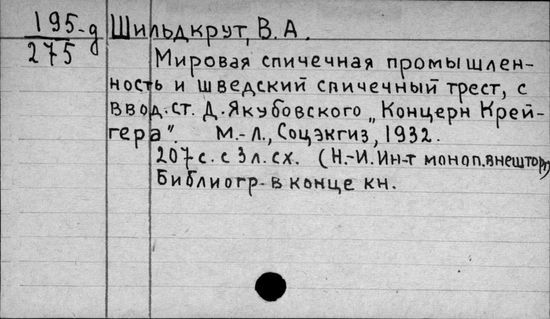 195-д Шильдкрут, В. А.
275
Мировая спичечная промышлен-
ность и шведский спичечный трест, с
ввод. ст. Д. Якубовского „Концерн Крей-
гера". М.-Л., Соцэкгиз, 1932.
207 с. с 3 л. сх. (Н.-И. Ин-т моноп. внешторг)
Библиогр. в конце кн.